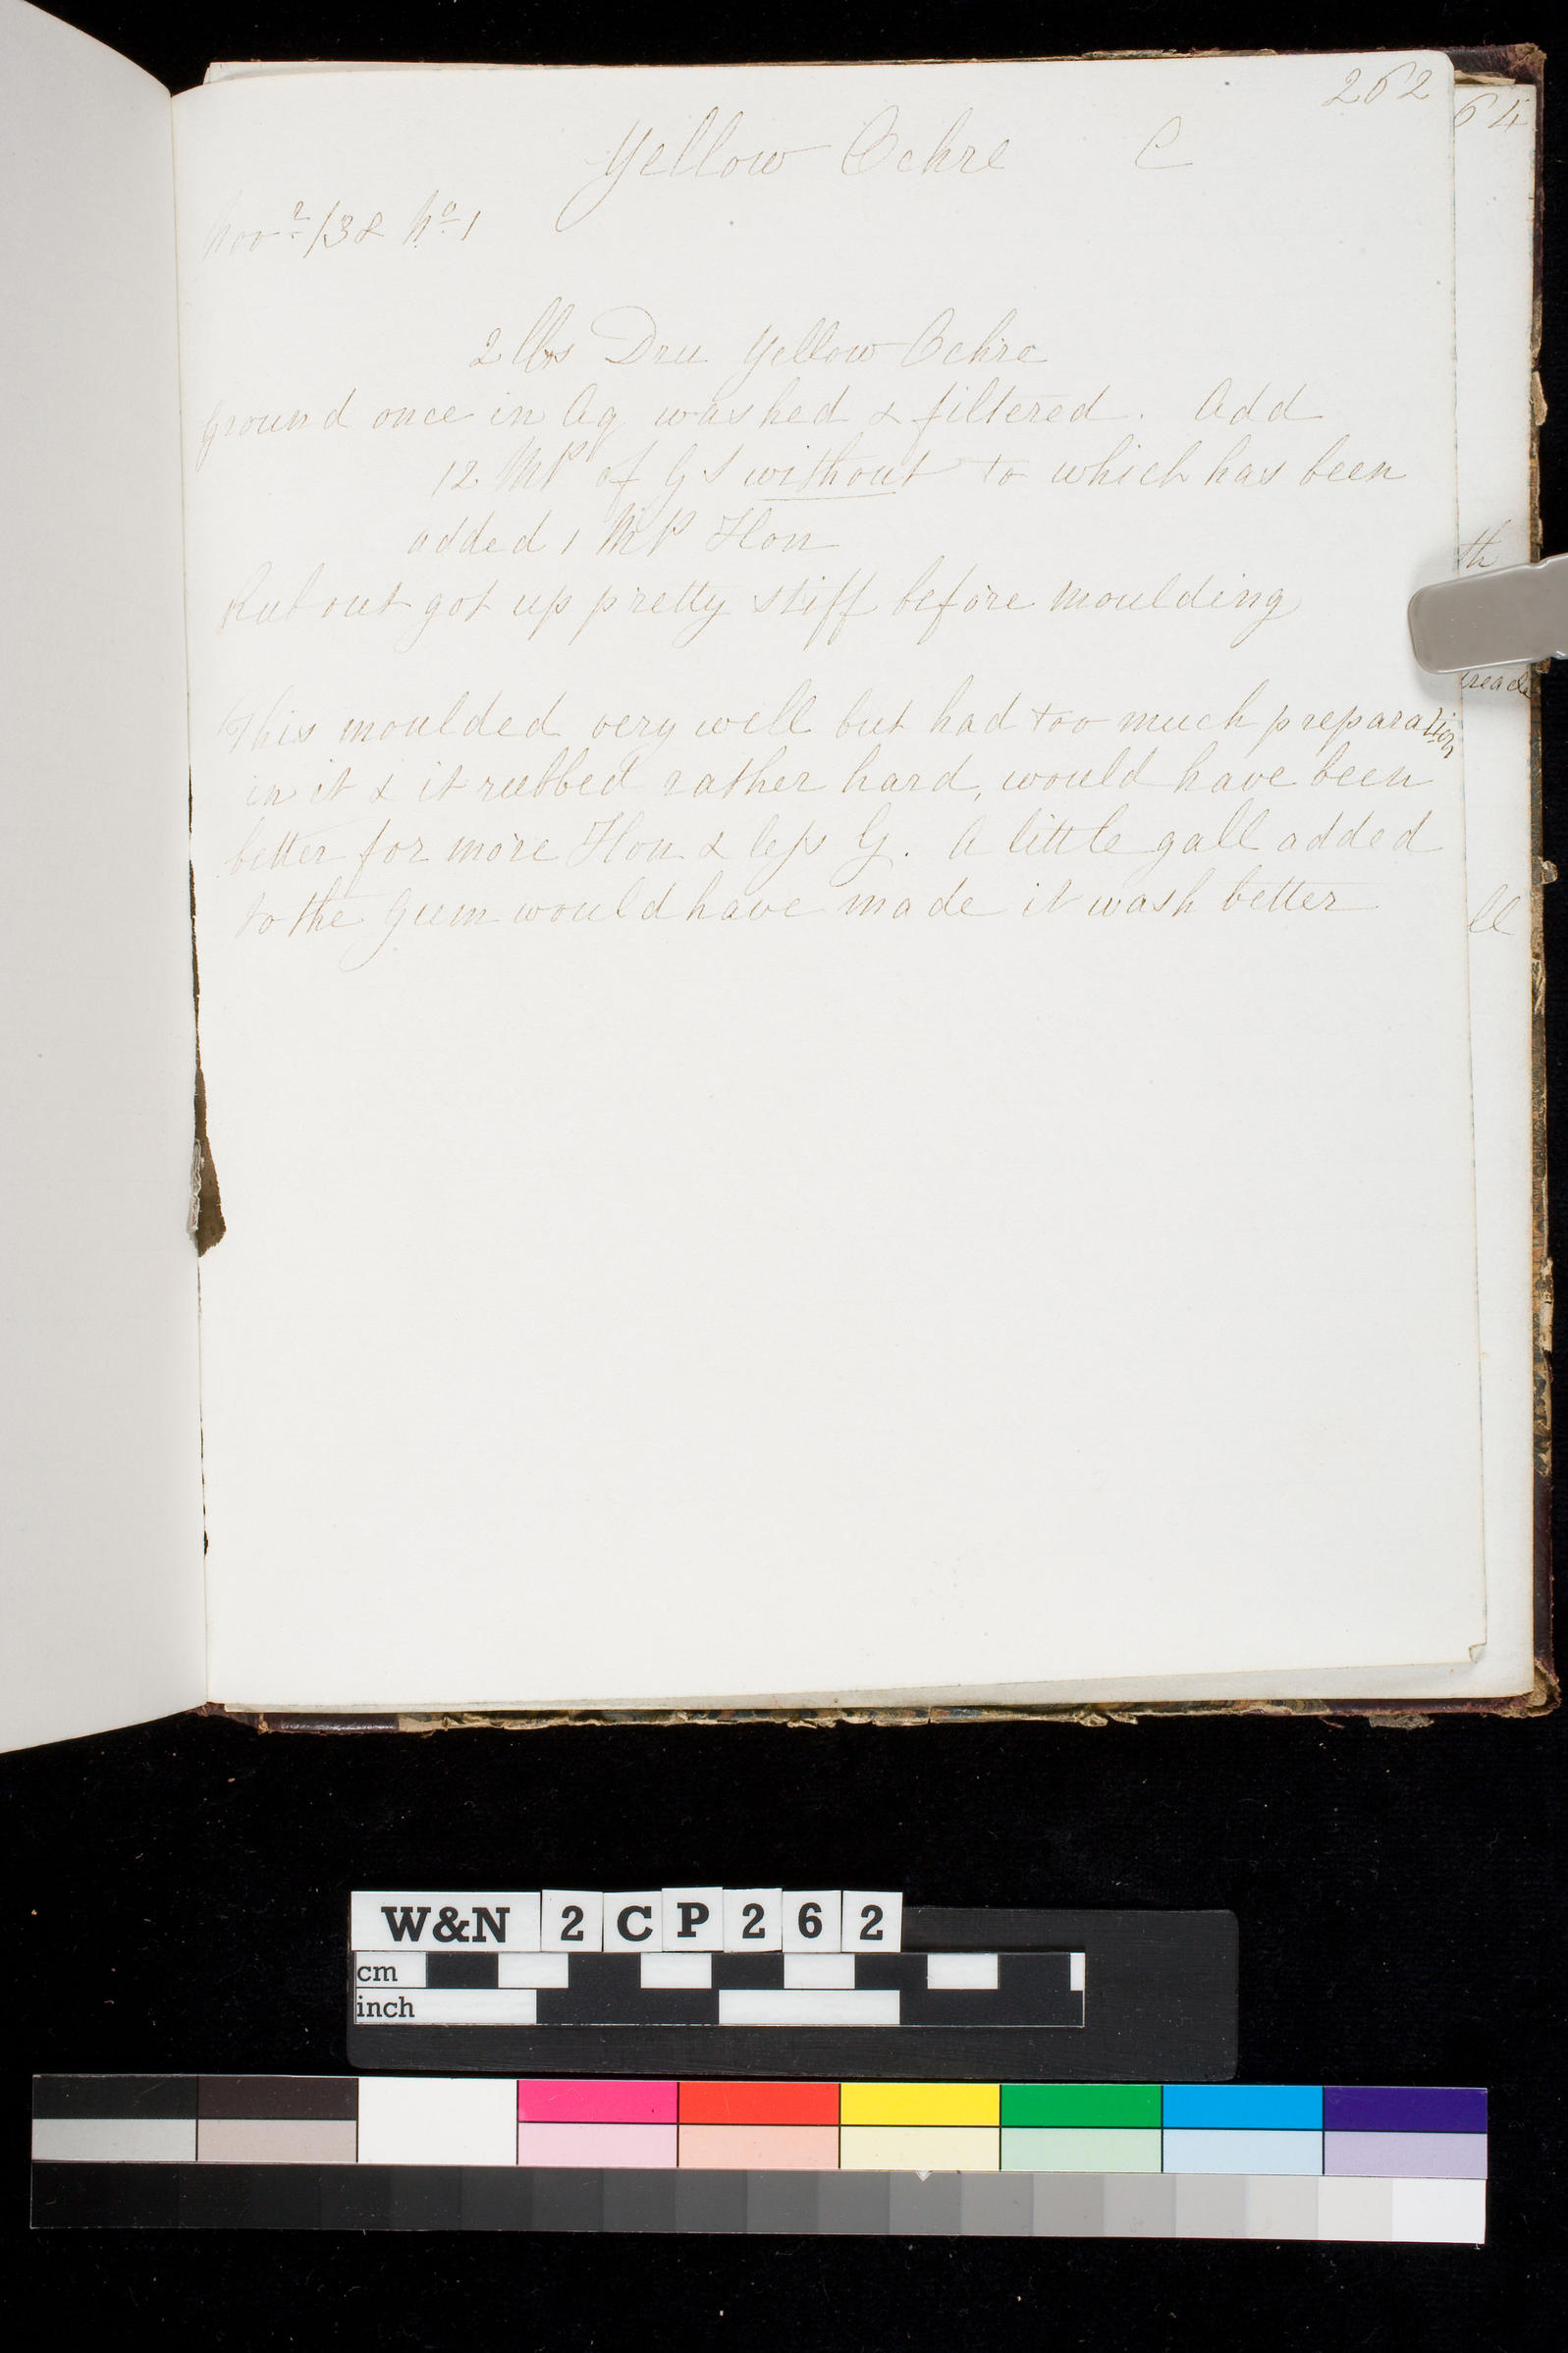 262
64
Yellow Ochre C
Novr /38 No 1
2 lbs Dru Yellow Ochre
ground once in Aq washed & filtered. Add
12 MP of G S without to which has been
added 1 MP Hon
Rub out got up pretty stiff before moulding
th
treacle
This moulded very well but had too much preparation
in it & it rubbed rather hard, would have been
better for more Hon & less G. A little gall added
to the Gum would have made it wash better
ll
W&N 2 C P 2 6 2
cm
inch